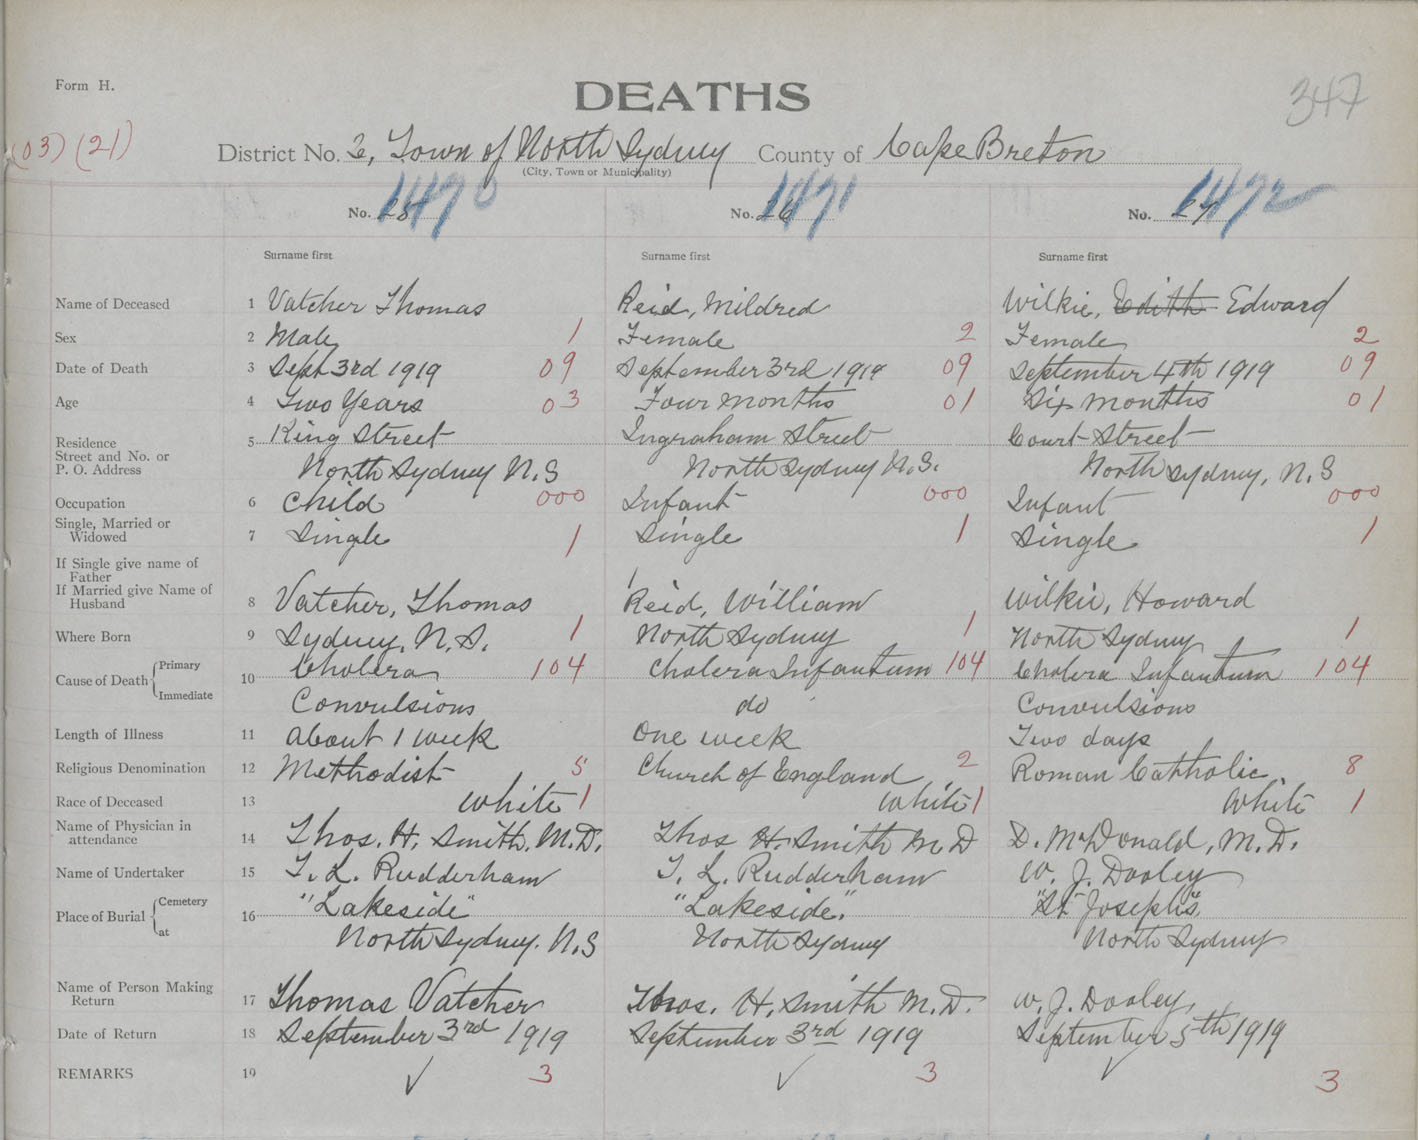 Form H.
DEATHS
347
(03) (21)
District No. 2, Town of North Sydney County of Cape Breton
(City, Town or Municipality)
1470 1471 1472
No. 25 No. 26 No. 27
Surname first Surname first Surname first
Name of Deceased 1 Vatcher Thomas Reid, Mildred Wilkie, Edith Edward
Sex 2 Male 1 Female 2 Female 2
Date of Death 3 Sept 3rd 1919 09 September 3rd 1919 09 September 4th 1919 09
Age 4 Two Years 03 Four months 01 Six months 01
Residence
Street and No. or
P. O. Address
5 King Street Ingraham Street Court Street
North Sydney N.S North Sydney N.S. North Sydney, N.S
Occupation 6 Child 000 Infant 000 Infant 000
Single, Married or
Widowed
7 Single 1 Single 1 Single 1
If Single give name of
Father
If Married give Name of
Husband
8 Vatcher, Thomas Reid, William Wilkie, Howard
Where Born 9 Sydney, N.S. 1 North Sydney 1 North Sydney 1
Cause of Death Primary
Immediate
10 Cholera 104 Cholera Infantum 104 Cholera Infantum 104
Convulsions do Convulsions
Length of Illness 11 about 1 week One week Two days
Religious Denomination 12 Methodist 5 Church of England 2 Roman Catholic. 8
Race of Deceased 13 White 1 White 1 White 1
Name of Physician in
attendance
14 Thos. H. Smith. M.D. Thos H. Smith M.D D. McDonald, M.D.
Name of Undertaker 15 T. L. Rudderham T. L. Rudderham W. J. Dooley
Place of Burial Cemetery
at
16 "Lakeside" "Lakeside". "St Joseph's"
North Sydney. N.S North Sydney North Sydney
Name of Person Making
Return
17 Thomas Vatcher Thos. H. Smith M.D. W. J. Dooley
Date of Return 18 September 3rd 1919 September 3rd 1919 September 5th 1919
REMARKS 19 ✓ 3 ✓ 3 ✓ 3